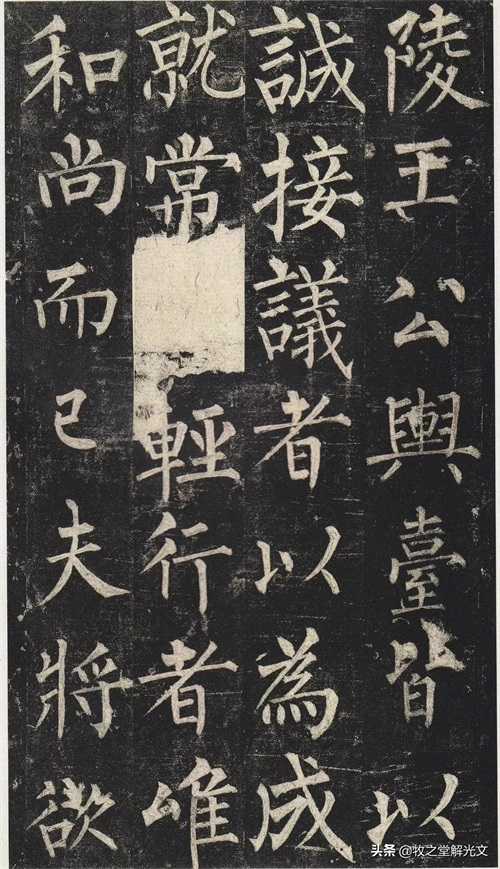 陵王公輿臺皆以
誠接議者以為成
就常輕行者唯
和尚而已夫將欲
头条 @牧之堂解光文